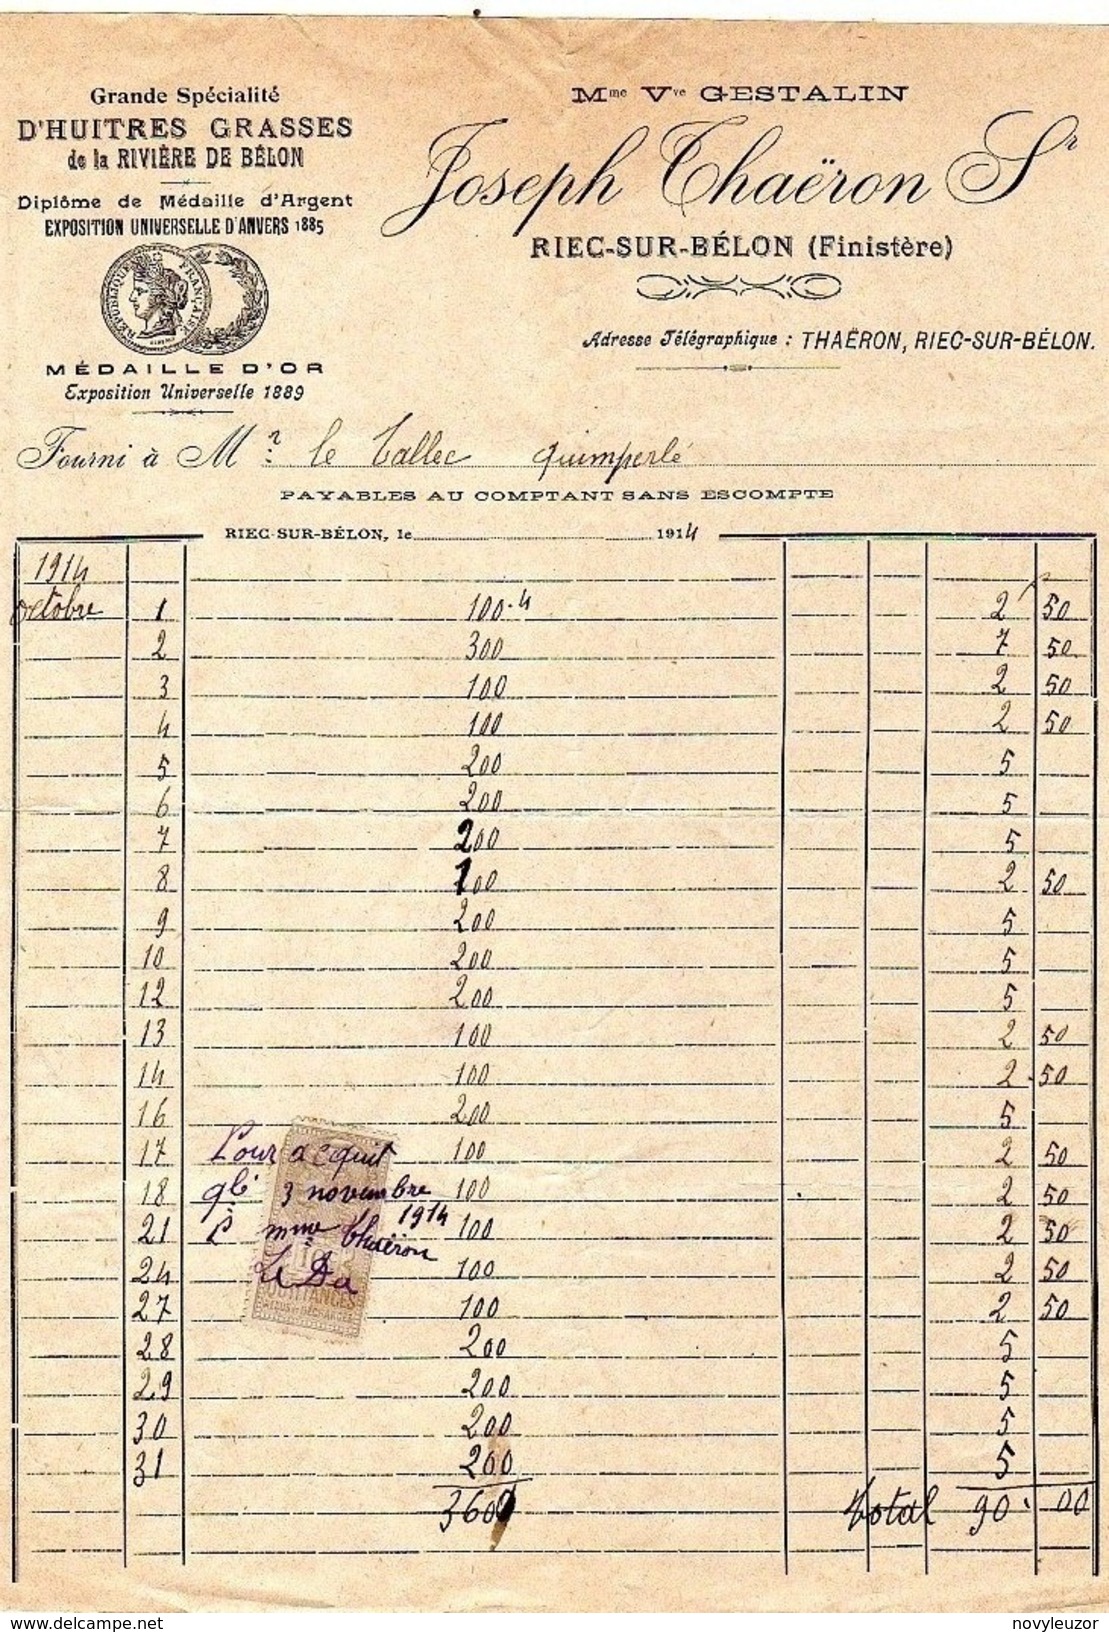 Grande Spécialité
D'HUITRES GRASSES
de la RIVIÈRE DE BÉLON
Diplôme de Médaille d'Argent
EXPOSITION UNIVERSELLE D'ANVERS 1885
RÉPUBLIQUE FRANÇAISE
MÉDAILLE D'OR
Exposition Universelle 1889
Mme Vve GESTALIN
Joseph Thaëron Sr
RIEC-SUR-BÉLON (Finistère)
Adresse Télégraphique : THAËRON, RIEC-SUR-BÉLON.
Fourni à Mr. le Tallec quimperlé
PAYABLES AU COMPTANT SANS ESCOMPTE
RIEC-SUR-BÉLON, le 1914
1914
octobre 1 100.4 2 50
2 300 7 50
3 100 2 50
4 100 2 50
5 200 5
6 200 5
7 200 5
8 100 2 50
9 200 5
10 200 5
12 200 5
13 100 2 50
14 100 2.50
16 200 5
17 Pour acquit 100 2 50
18 qlé 3 novembre 100 2 50
1914
21 P mme Thaëron 100 2 50
24 100 2 50
QUITTANCES
REÇUS ET DÉCHARGES
27 100 2 50
28 200 5
29 200 5
30 200 5
31 200 5
3600 Total 90.00
delcampe.net
novyleuzor